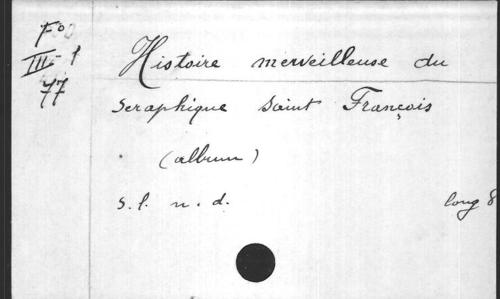 Fº
III - 1
77
Histoire merveilleuse du
Seraphique Saint François
(album)
S. l. n. d.
long 8